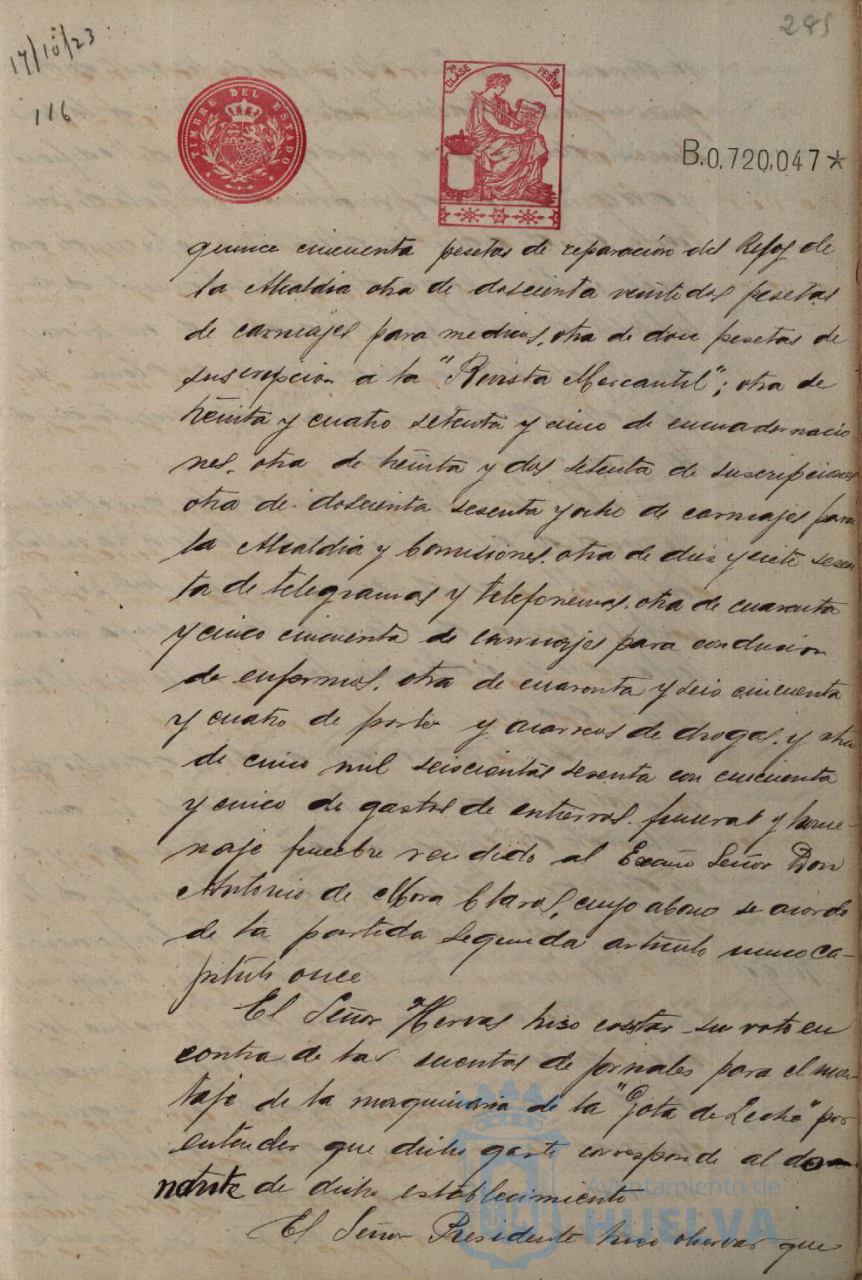 285
17/10/23
116
TIMBRE DEL ESTADO
7ª CLASE
8 PESETAS
B.0,720,047*
quince cincuenta pesetas de reparación del Reloj de
la Alcaldia otra de doscienta veintidos pesetas
de carruajes para medicos, otra de doce pesetas de
suscripción á la "Revista Mercantil"; otra de
treinta y cuatro setenta y cinco de encuadernacio
nes, otra de treinta y dos setenta de suscripciones
otra de doscienta sesenta y ocho de carruajes para
la Alcaldia y Comisiones, otra de diez y siete sesen
ta de telegramas y telefonemas, otra de cuarenta
y cinco cincuenta de carruajes para conducion
de enfermos, otra de cuarenta y seis cincuenta
y cuatro de porte y acarreos de drogas, y otra
de cinco mil seiscientas sesenta con cincuenta
y cinco de gastos de entierros, funeral y home-
naje funebre rendido al Excmo Señor Don
Antonio de Mora Claros, cuyo abono se acordo
de la partida segunda articulo unico ca-
pitulo once
El Señor Hervas hizo costar su voto en
contra de las cuentas de jornales para el mon-
taje de la maquinaria de la "Gota de Leche" por
entender que dicho gasto corresponde al do-
nante de dicho establecimiento
El Señor Presidente hizo observar que
Ayuntamiento de
HUELVA